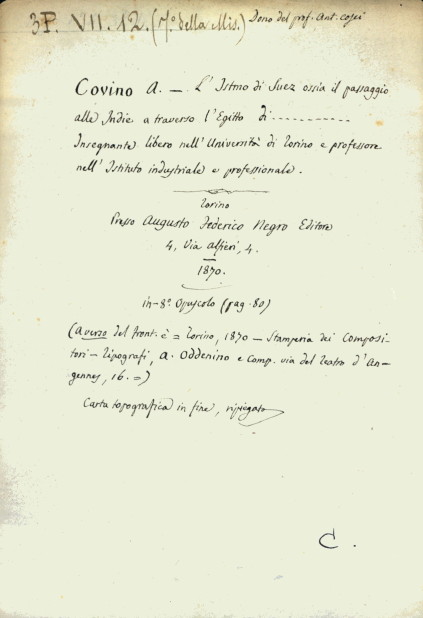 3P. VII. 12. (N.º della Mis.) Dono del prof. Ant.
Covino A. — L'Istmo di Suez ossia il passaggio
alle Indie a traverso l'Egitto di ...........
Insegnante libero nell'Università di Torino e professore
nell'Istituto industriale e professionale.
Torino
Presso Augusto Federico Negro Editore
4, Via Alfieri, 4.
1870.
in-8º. Opuscolo (pag. 80)
(A verso del front. è = Torino, 1870 — Stamperia dei Composi-
tori-Tipografi, A. Oddenino e Comp. via del Teatro d'An-
gennes, 16. =)
Carta topografica in fine, ripiegata
C.